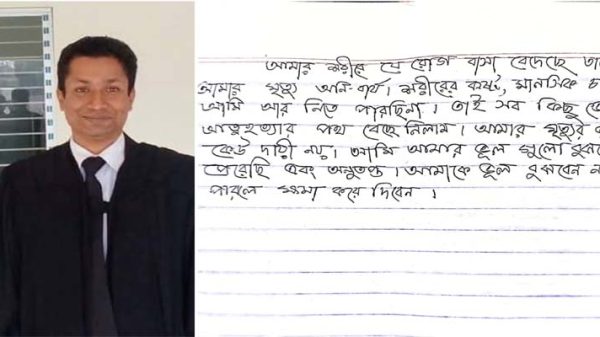 আমার শরীরে যে রোগ বাসা বেদেছে
আমার মৃত্যু অনিবার্য। শরীরের কষ্ট, মানসিক
আমি আর নিতে পারছিনা। তাই সব কিছু
আত্মহত্যার পথ বেছে নিলাম। আমার মৃত্যুর
কেউ দায়ী নয়। আমি আমার ভুল গুলো
পেরেছি এবং অনুতপ্ত। আমাকে ভুল বুঝবেন
পারলে ক্ষমা করে দিবেন।